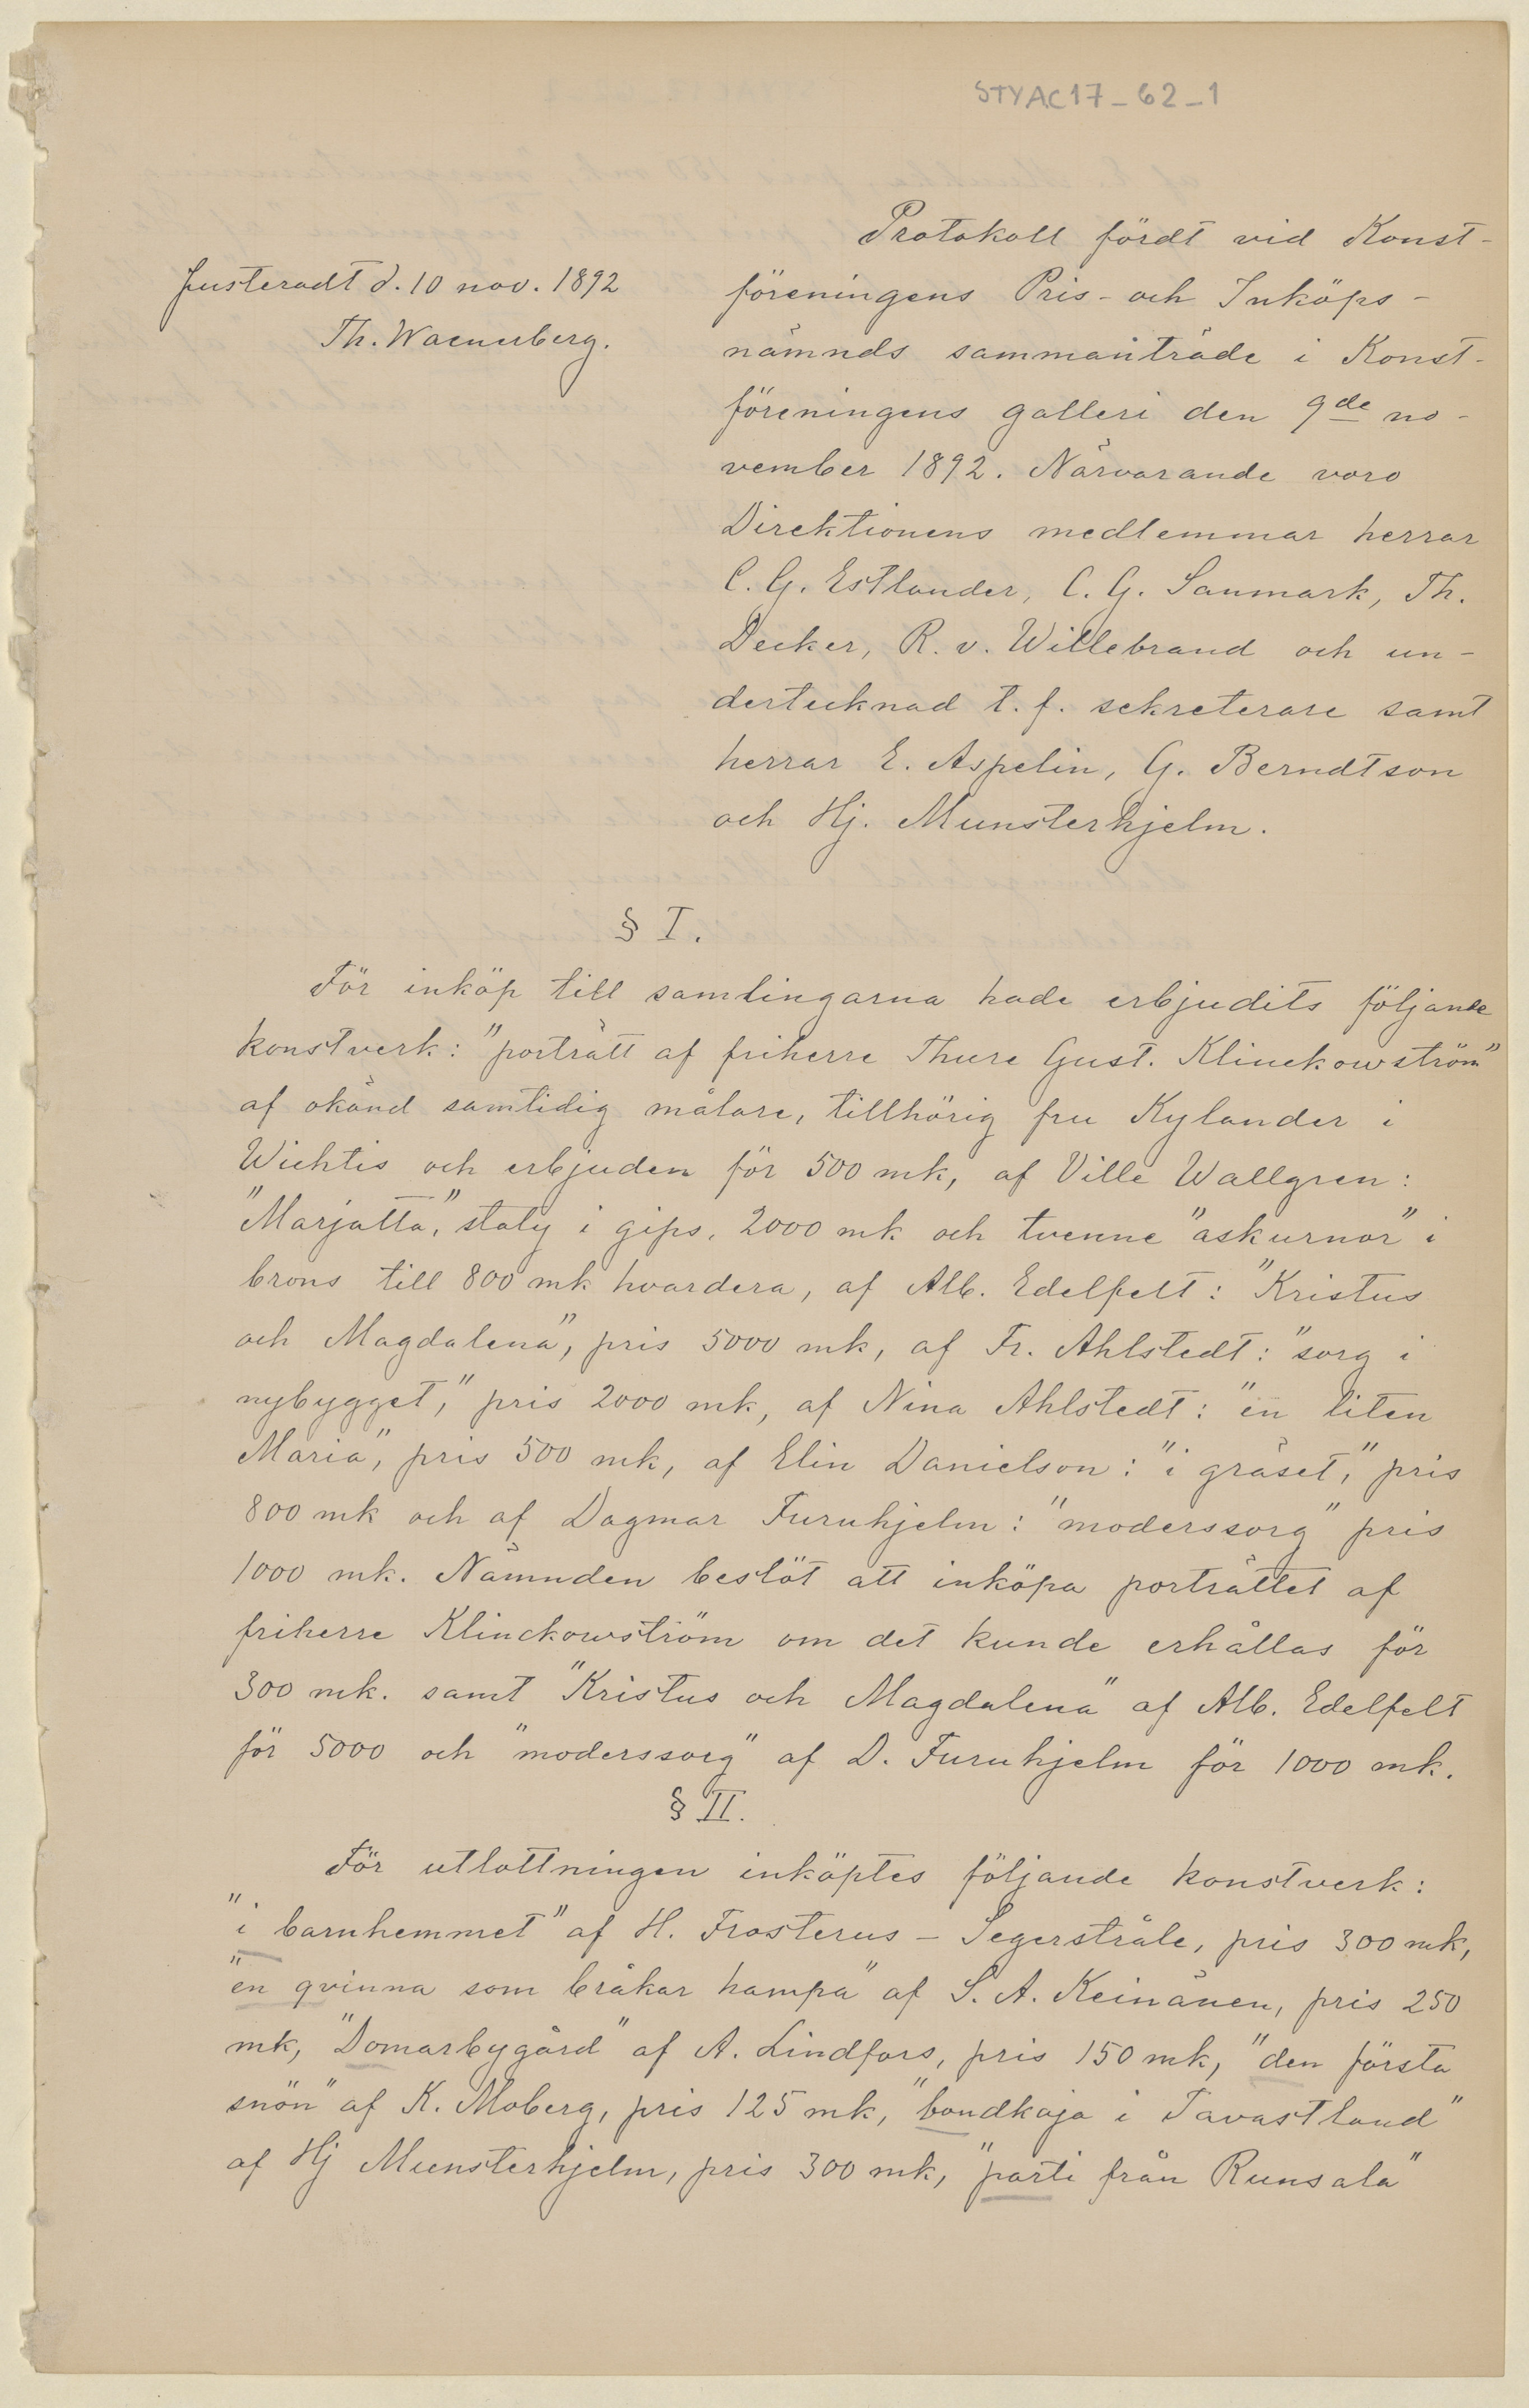 STYAC17_62_1
Justeradt d. 10 nov. 1892
Th. Waenerberg.
Protokoll fördt vid Konst-
föreningens Pris- och Inköps-
nämnds sammanträde i Konst-
föreningens galleri den 9de no-
vember 1892. Närvarande voro
Direktionens medlemmar herrar
C. G. Estlander, C. G. Sanmark, Th.
Decker, R. v. Willebrand och un-
dertecknad t. f. sekreterare samt
herrar E. Aspelin, G. Berndtson
och Hj. Munsterhjelm.
§ I.
För inköp till samlingarna hade erbjudits följande
konstverk: "porträtt af friherre Thure Gust. Klinckowström"
af okänd samtidig målare, tillhörig fru Kylander i
Wichtis och erbjuden för 500 mk, af Ville Wallgren:
"Marjatta," staty i gips, 2000 mk och tvenne "askurnor" i
brons till 800 mk hvardera, af Alb. Edelfelt: "Kristus
och Magdalena", pris 5000 mk, af Fr. Ahlstedt: "sorg i
nybygget," pris 2000 mk, af Nina Ahlstedt: "en liten
Maria", pris 500 mk, af Elin Danielson: "i gräset," pris
800 mk och af Dagmar Furuhjelm: "moderssorg" pris
1000 mk. Nämnden beslöt att inköpa porträttet af
friherre Klinckowström om det kunde erhållas för
300 mk. samt "Kristus och Magdalena" af Alb. Edelfelt
för 5000 och "moderssorg" af D. Furuhjelm för 1000 mk.
§ II.
För utlottningen inköptes följande konstverk:
"i barnhemmet" af H. Frosterus - Segerstråle, pris 300 mk,
"en qvinna som bråkar hampa" af S. A. Keinänen, pris 250
mk, "Domarbygård" af A. Lindfors, pris 150 mk, "den första
snön" af K. Moberg, pris 125 mk, "bondkoja i Tavastland"
af Hj Munsterhjelm, pris 300 mk, "parti från Runsala"